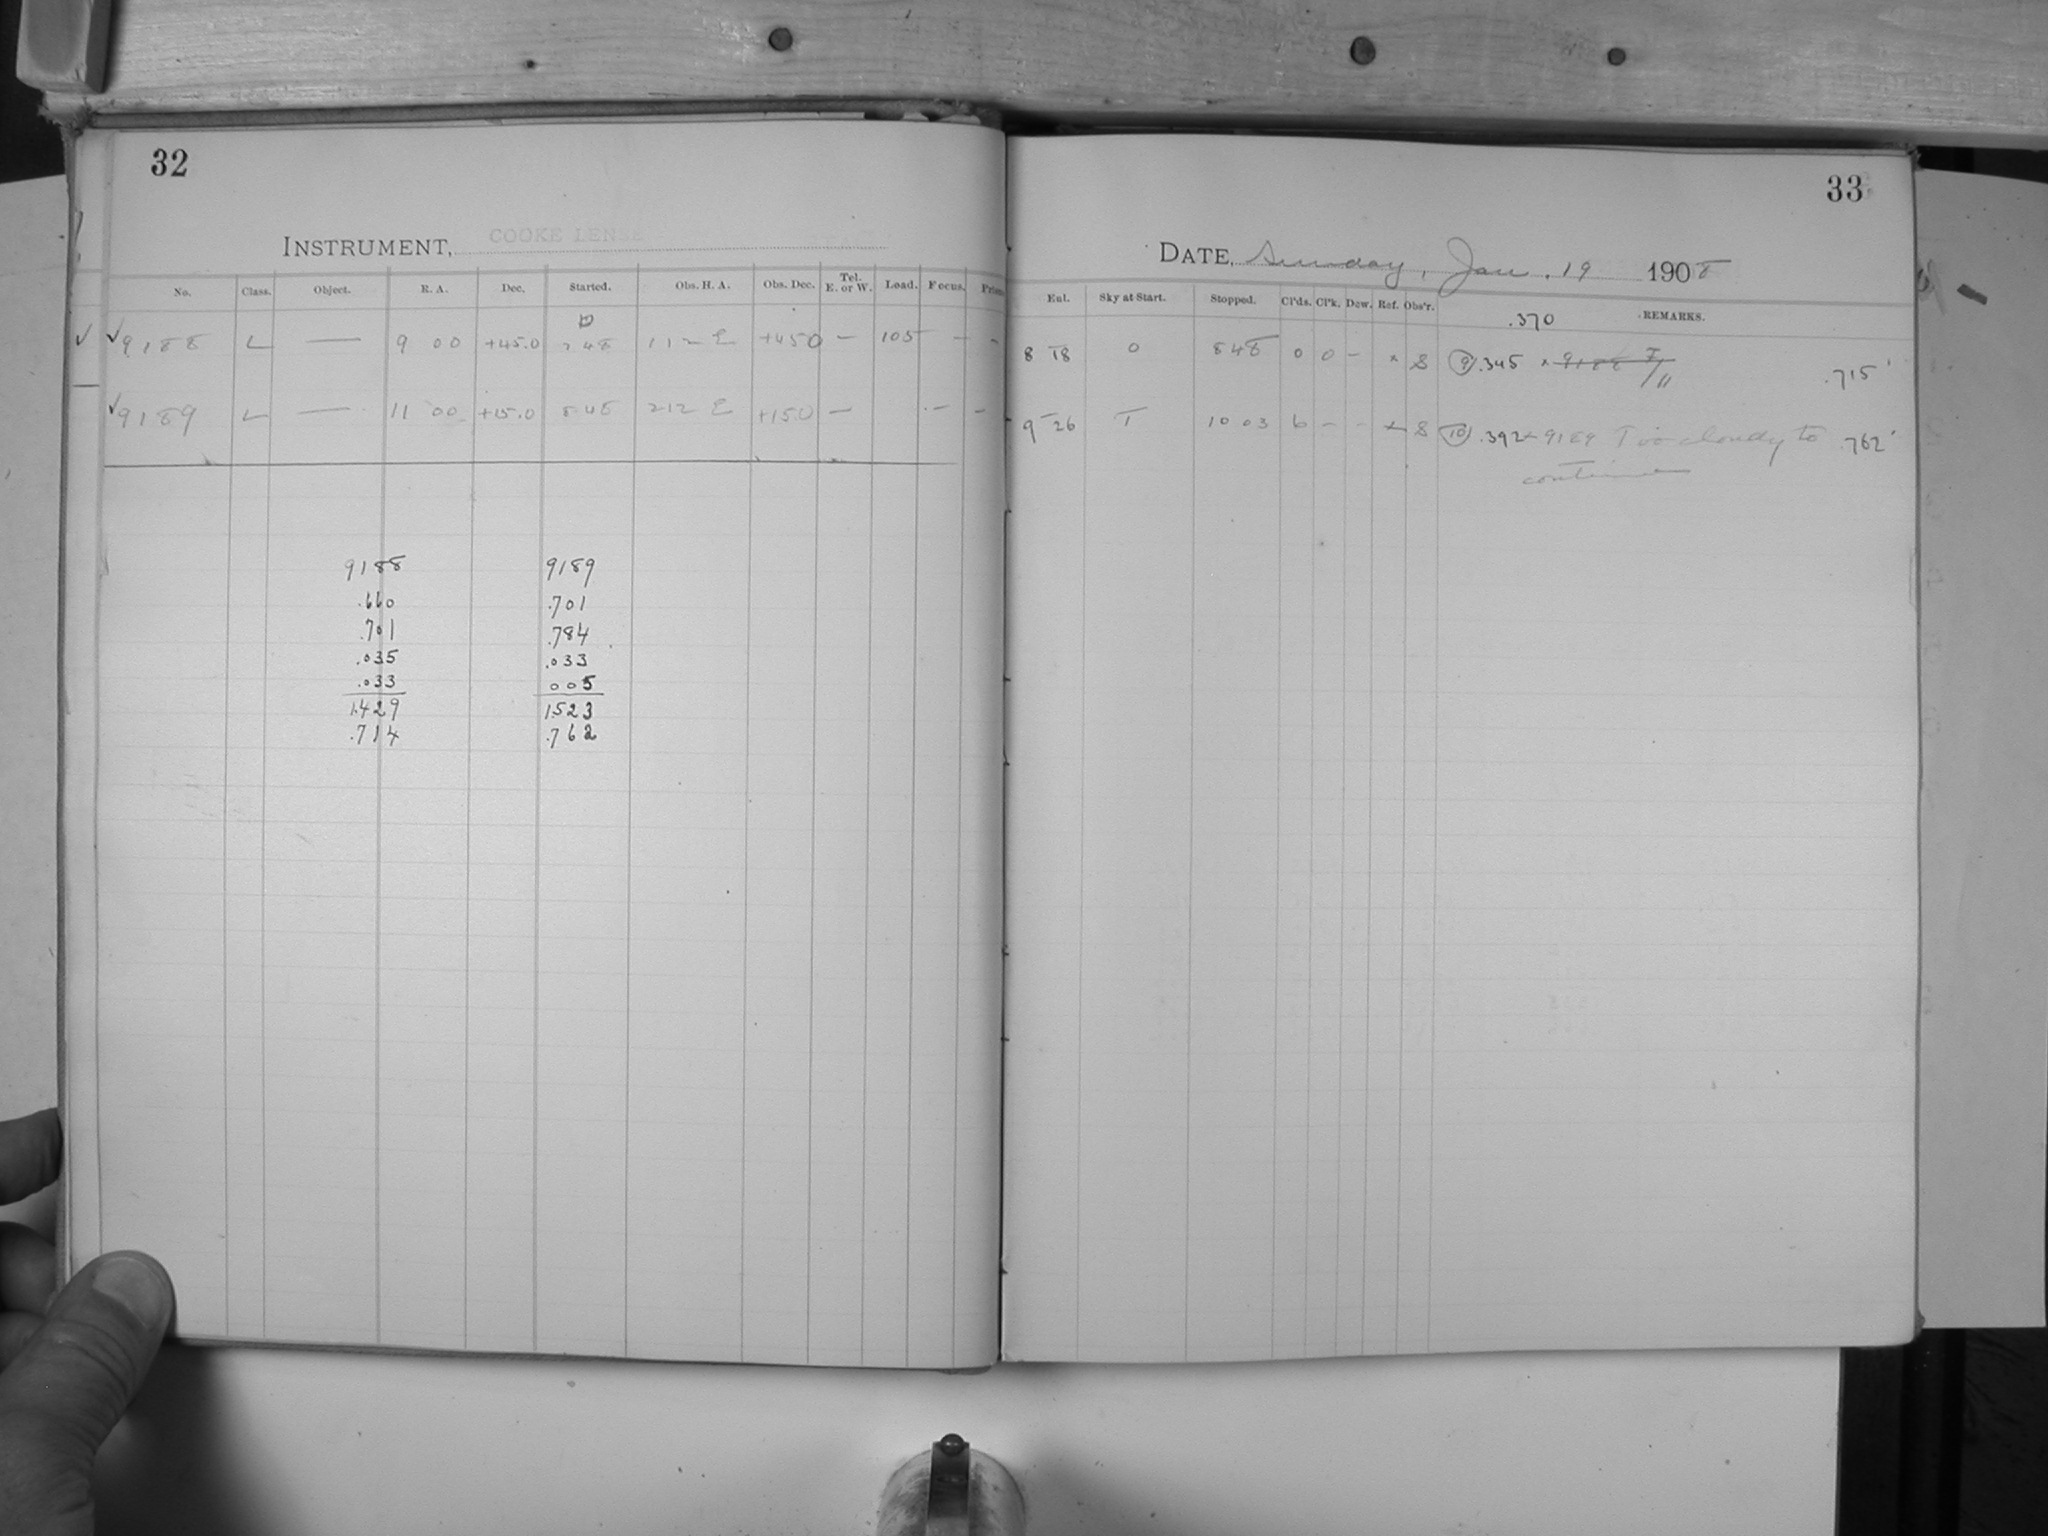 32
INSTRUMENT, COOKE LENSE
No. Class. Object. R. A. Dec. Started. Obs. H. A. Obs. Dec. Tel. E. or W. Load. Focus. Prism
✓ ✓9188 L — 9 00 +45.0 7 48 1 12 E +45.0 — 105 — -
✓9189 L — 11 00 +15.0 8 48 2 12 E +15.0 — — -
9188 9189
.660 .701
.701 .784
.035 .033
.033 005
1.429 1.523
.714 .762
33
DATE, Sunday, Jan. 19 1908
Exl. Sky at Start. Stopped. Cl'ds. Cl'k. Dew. Ref. Obs'r. REMARKS.
.370
8 18 0 8 48 0 0 - × S 9 .345 × 9188 .715
9 26 T 10 03 6 - - × S 10 .392 × 9189 Too cloudy to .762
continue